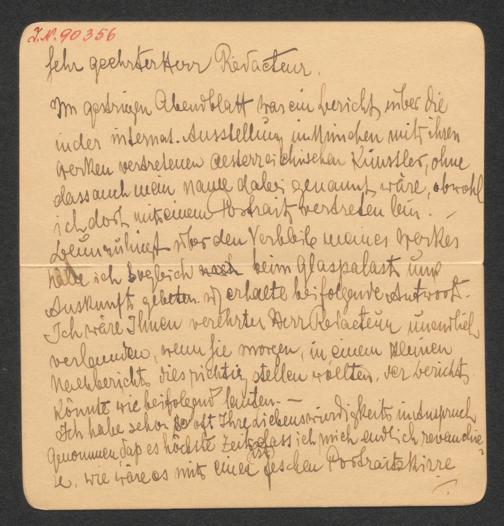 I.N. 90356
Sehr geehrter Herr Redacteur.
Im gestrigen Abendblatt war ein Bericht über die
in der internat. Ausstellung in München mit ihren
Werken vertretenen oesterreichischen Künstler, ohne
dass auch mein Name dabei genannt wäre, obwohl
ich dort mit einem Portrait vertreten bin. –
Beunruhigt über den Verbleib meines Werkes
habe ich sogleich beim Glaspalast um
Auskunft gebeten u erhalte beifolgende Antwort.
Ich wäre Ihnen verehrter Herr Redacteur unendlich
verbunden, wenn Sie morgen, in einem kleinen
Nachbericht dies richtig stellen wollten, der Bericht
könnte wie beifolgend lauten. –
Ich habe schon so oft Ihre Liebenswürdigkeit in Anspruch
genommen, dap es höchste Zeit ist, dass ich mich endlich revanchie=
re, wie wäre es mit einer feschen Portraitskizze